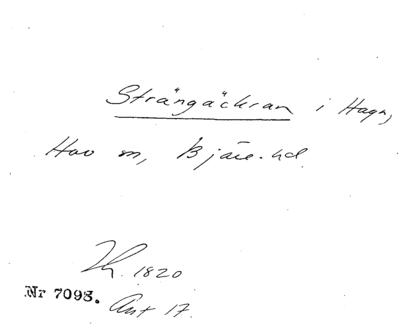 Strängäckran i Haga,
Hov sn, Bjäre hd.
Th. 1820
Nr 7098.
Ant 17.